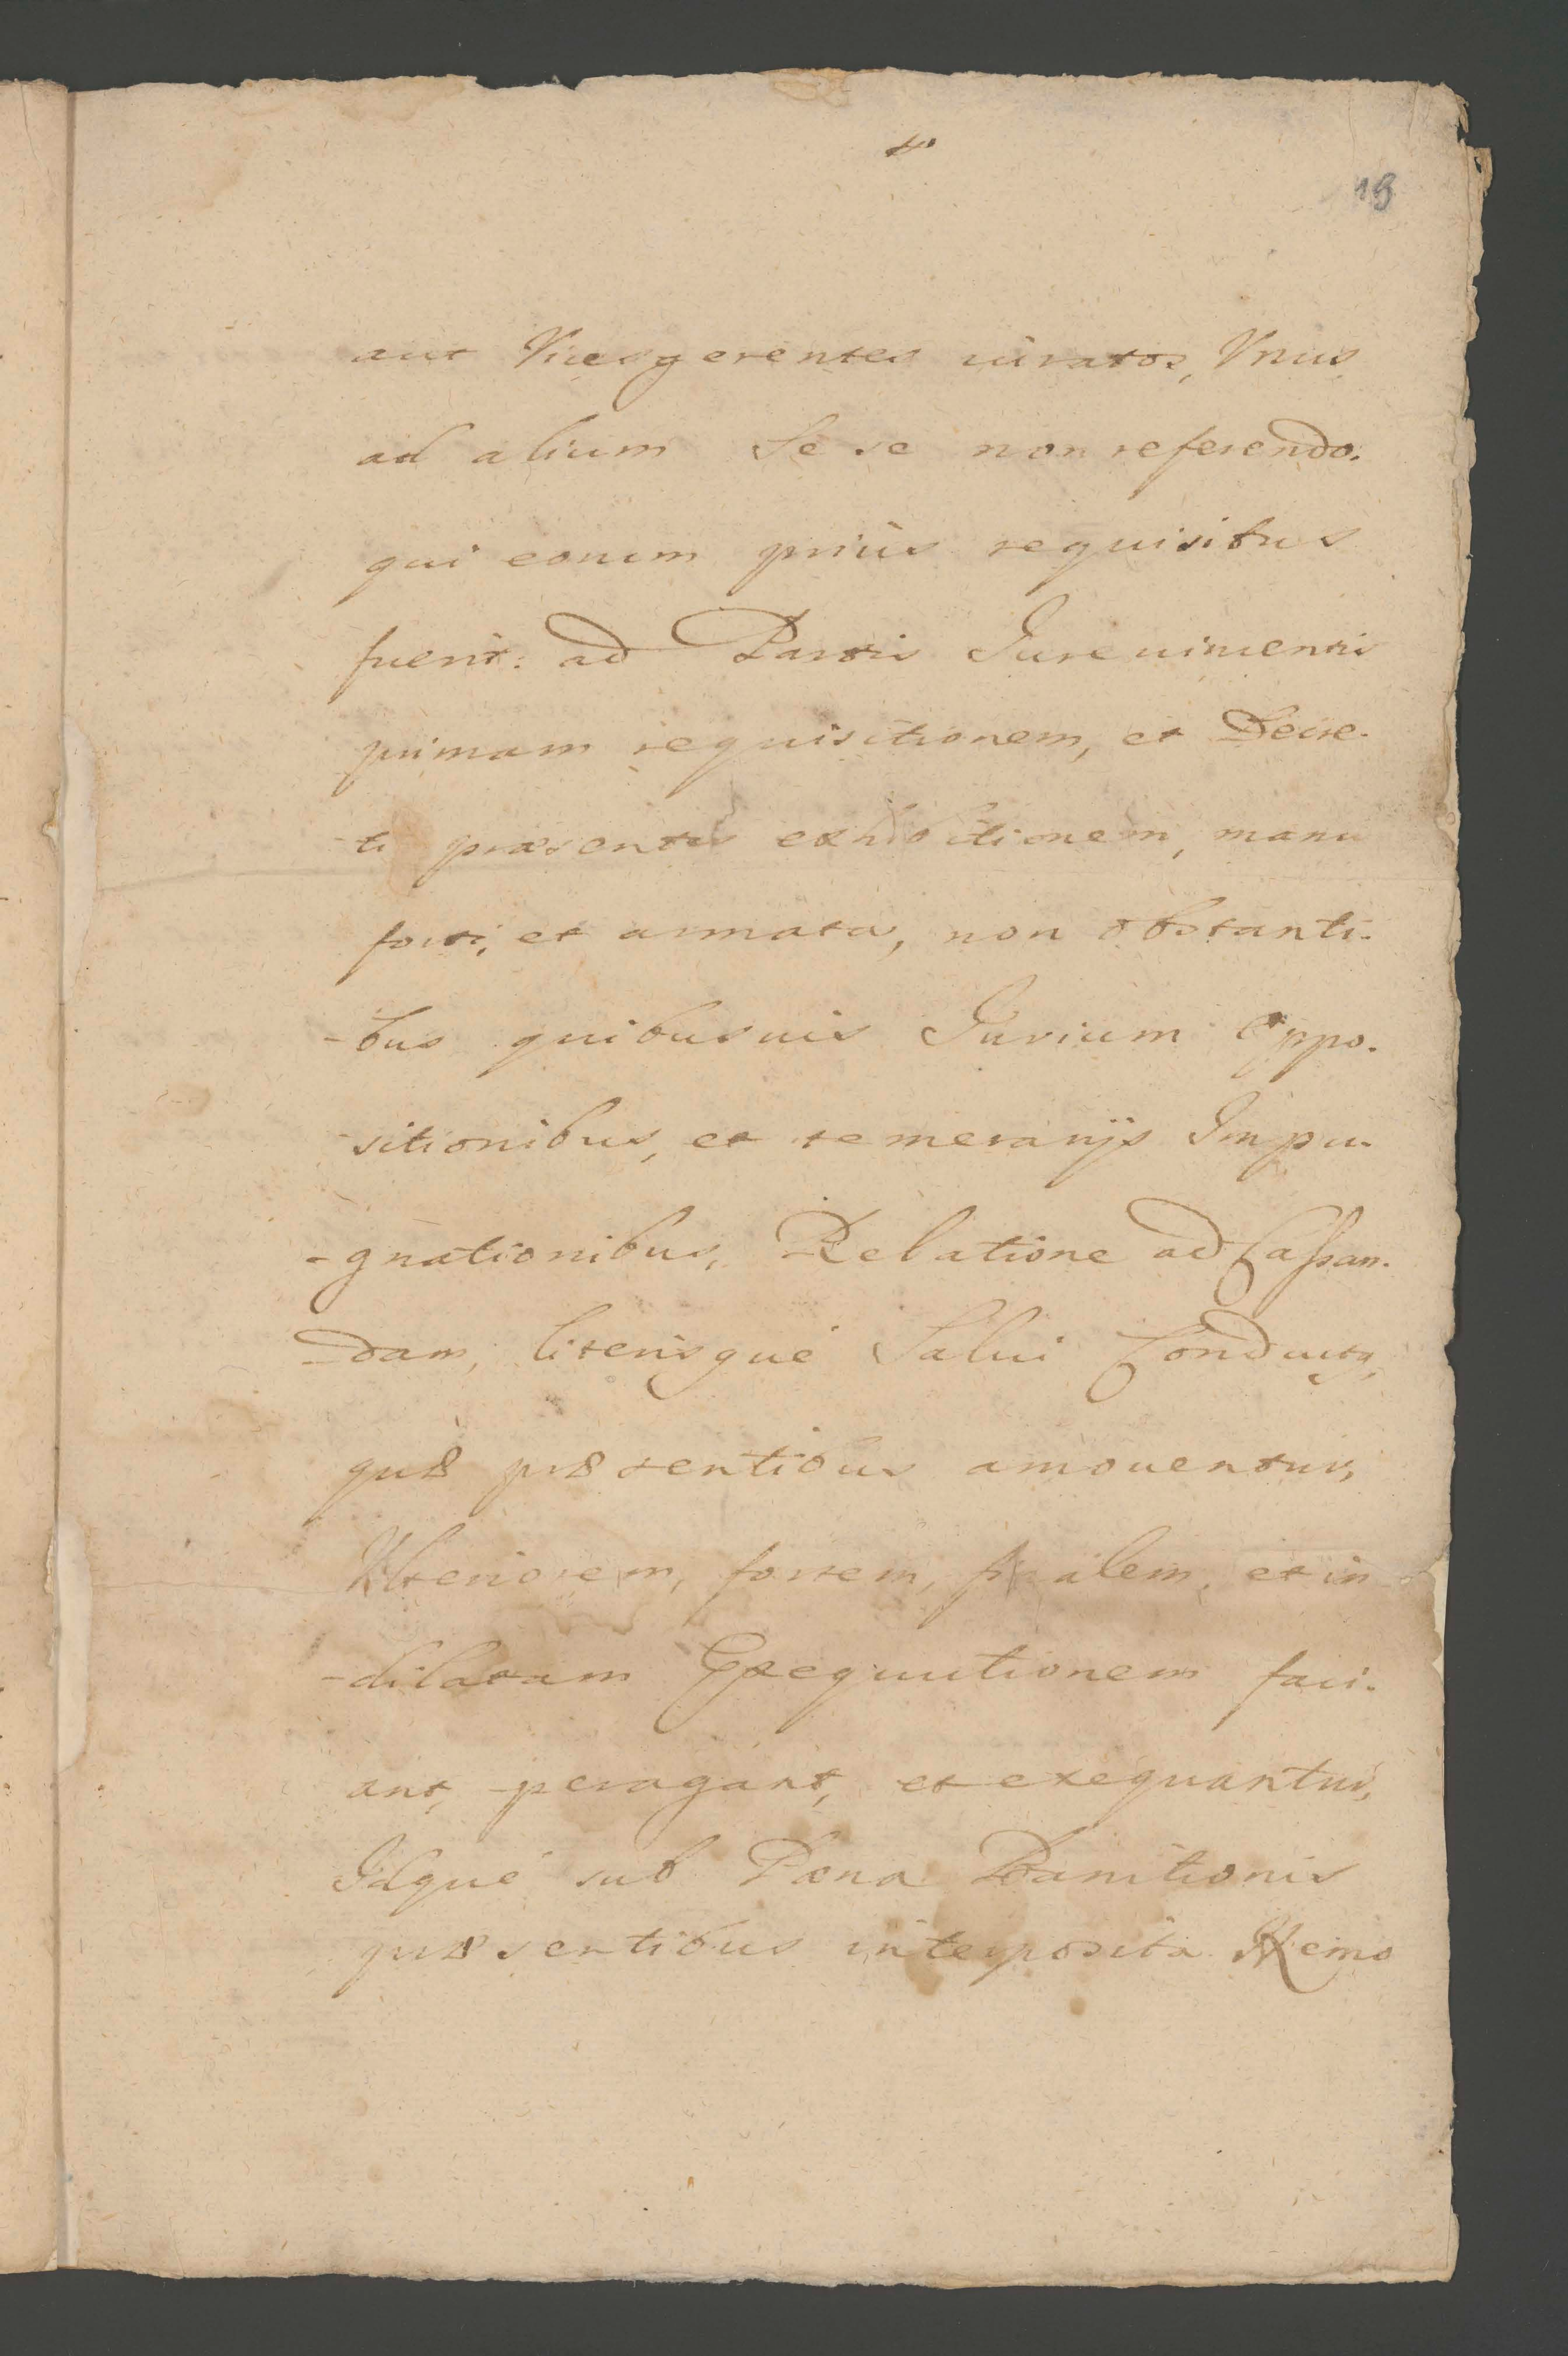 19
aut Vicesgerentes iuratos, Vnus
ad alium sese non referendo.
qui eorum prius requisitus
fuerit: ad Partis Jure vincentis
primam requisitionem, et Decre-
-ti præsentis exhibitionem, manu
forti, et armata, non obstanti-
-bus quibusuis Jurium Oppo-
sitionibus, et temerarijs Impu-
-gnationibus, Relatione ad Cassan-
-dam, literisque Salui Conductus,
quæ præsentibus amouentur,
Vlteriorem, fortem, realem, et in
-dilatam Exequutionem faci-
ant, peragant, et exequantur,
Idque sub Pœna Banitionis
præsentibus interposita